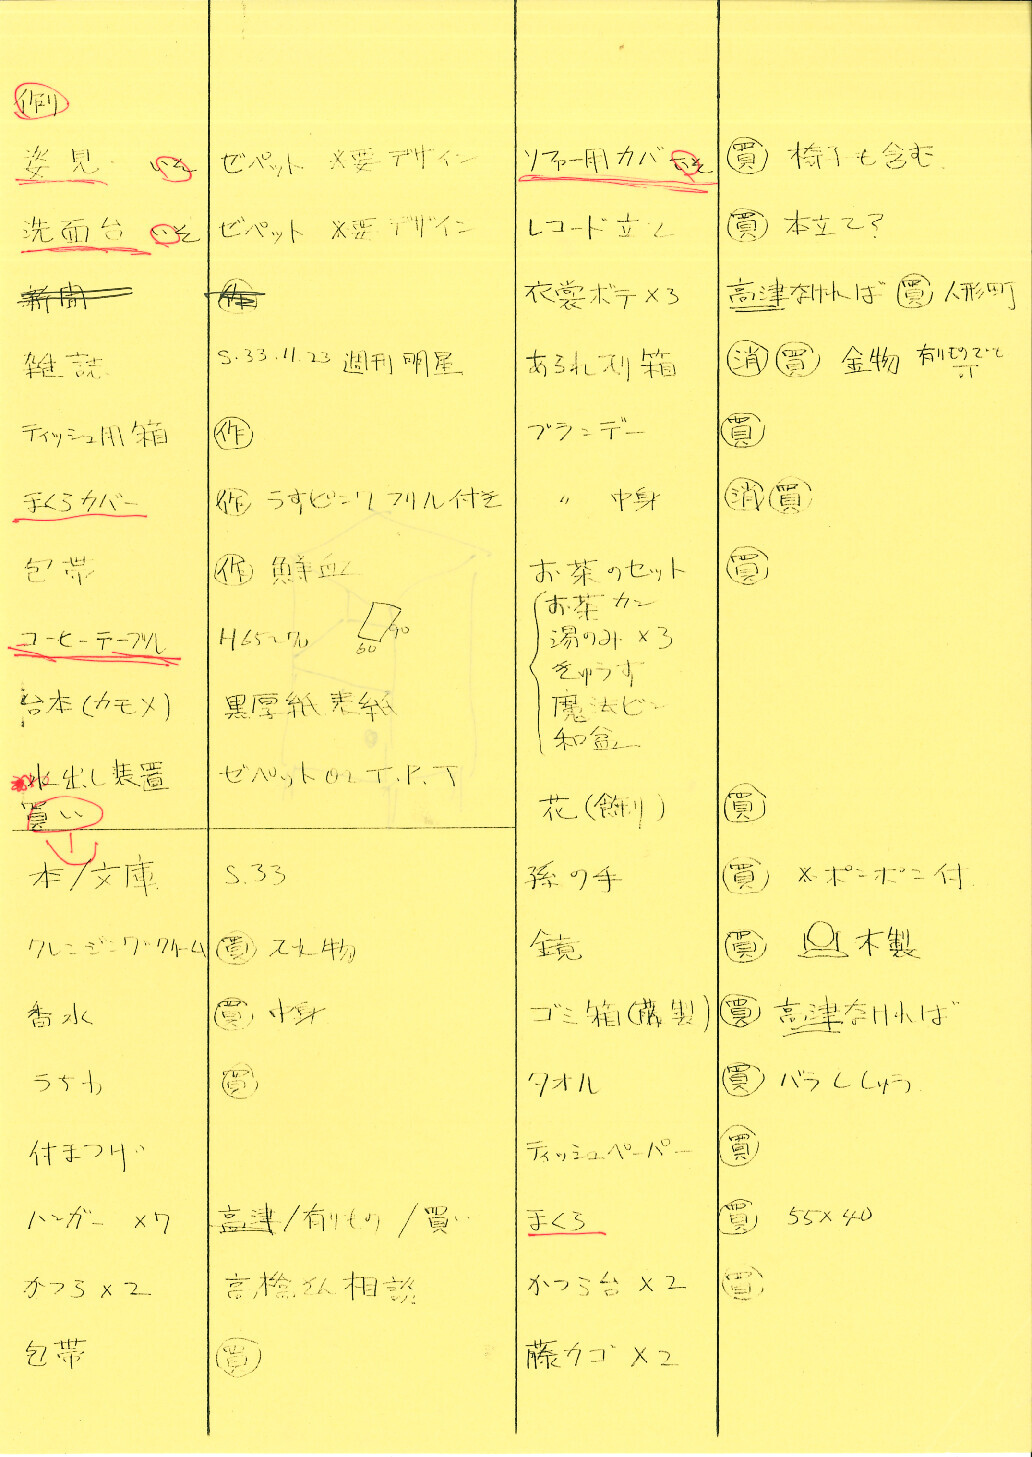 作り
姿見 いそ ゼペット ※要デザイン
洗面台 いそ ゼペット ※要デザイン
新聞 作
雑誌 S.33.11.23 週刊明星
ティッシュ用箱 作
まくらカバー 作 うすピンク フリル付き
包帯 作 鮮血
コーヒーテーブル H65~70 60 90
台本(カモメ) 黒厚紙表紙
水出し装置 ゼペット or T.P.T
買い
本/文庫 S.33
クレンジングクリーム 買 入れ物
香水 買 中身
うちわ 買
付まつげ
ハンガー ×7 高津/有りもの/買い
かつら×2 高橋さん相談
包帯 買
ソファー用カバー いそ 買 椅子も含む
レコード立て 買 本立て?
衣裳ボテ×3 高津なければ 買 人形町
あられ 箱 消 買 金物 有りもので
ブランデー 買
〃 中身 消 買
お茶のセット 買
お茶カン
湯のみ×3
きゅうす
魔法ビン
和盆
花(飾り) 買
孫の手 買 ※ポンポン付
鏡 買 木製
ゴミ箱(籐製) 買 高津なければ
タオル 買 バラししゅう
ティッシュペーパー 買
まくら 買 55×40
かつら台×2 買
藤カゴ×2